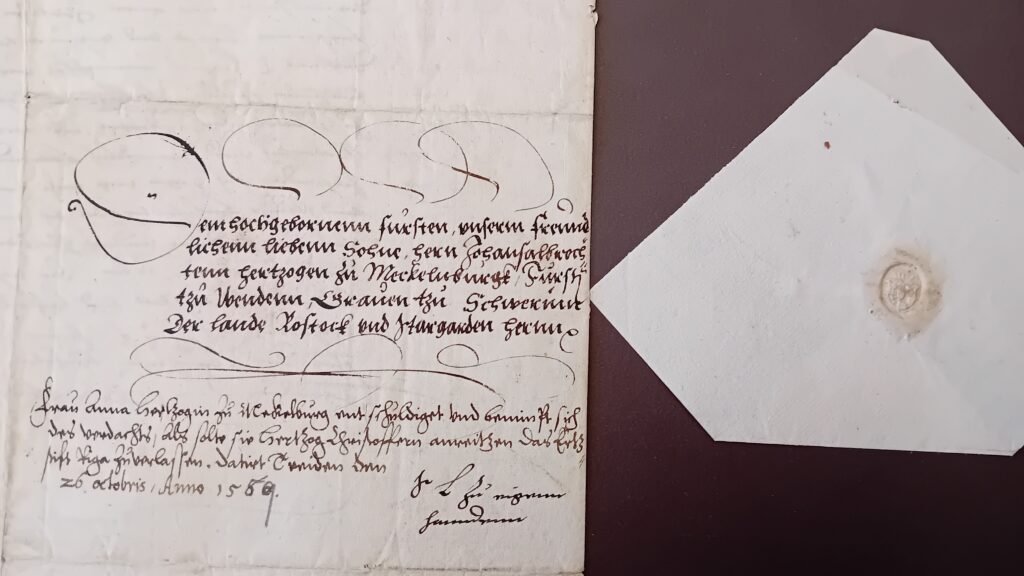 Dem hochgebornenn fursten, unserm freund
lichenn liebenn Sohne, hern Johansalbrech
tenn hertzogen zu Meckelnburgk, Furst
tzu Wendenn, Grauen tzu Schwerinn
Der lande Rostock vnd Stargarden hernn
Frau Anna Hertzogin zu Mekelburg entschuldiget vnd benimpt sich
des verdachts, als solte sie Hertzog Christoffern anreitzen das Ertz
stifft Riga zuverlassen. datirt den
26 octobris, Anno 156
zu eigenn
hanndenn